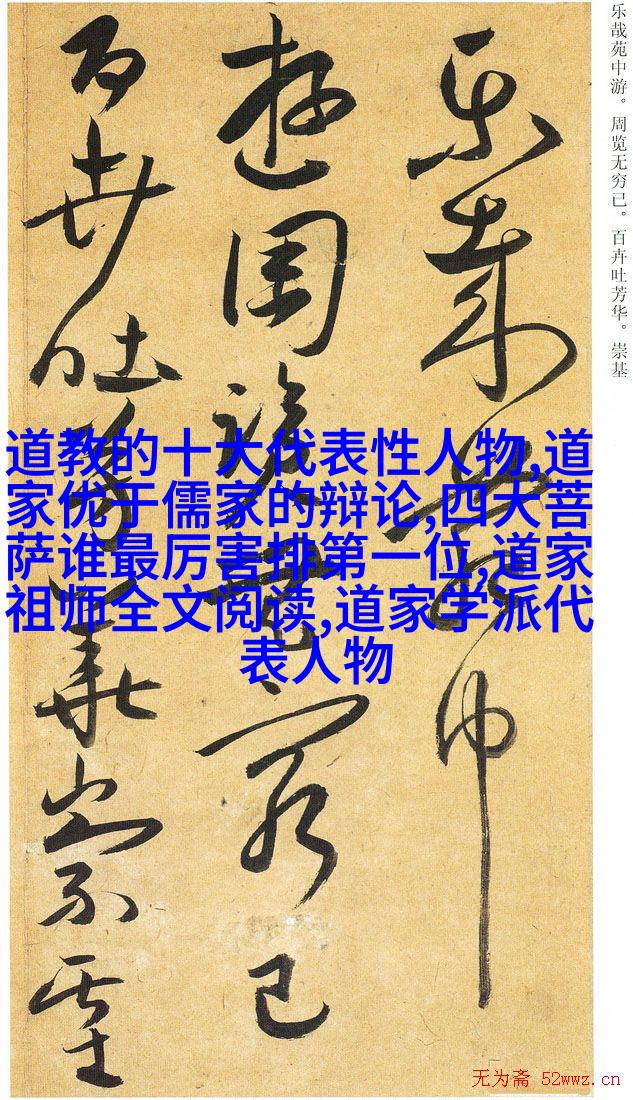 乐哉苑中游。周览无穷已。百卉吐芳华。崇基
樂哉苑中
遊周覽無窮已
百卉吐芳華崇基
道教的十大代表性人物,道
家优于儒家的辩论,四大菩
萨谁最厉害排第一位,道家
祖师全文阅读,道家学派代
表人物
无为斋 52wwz.cn